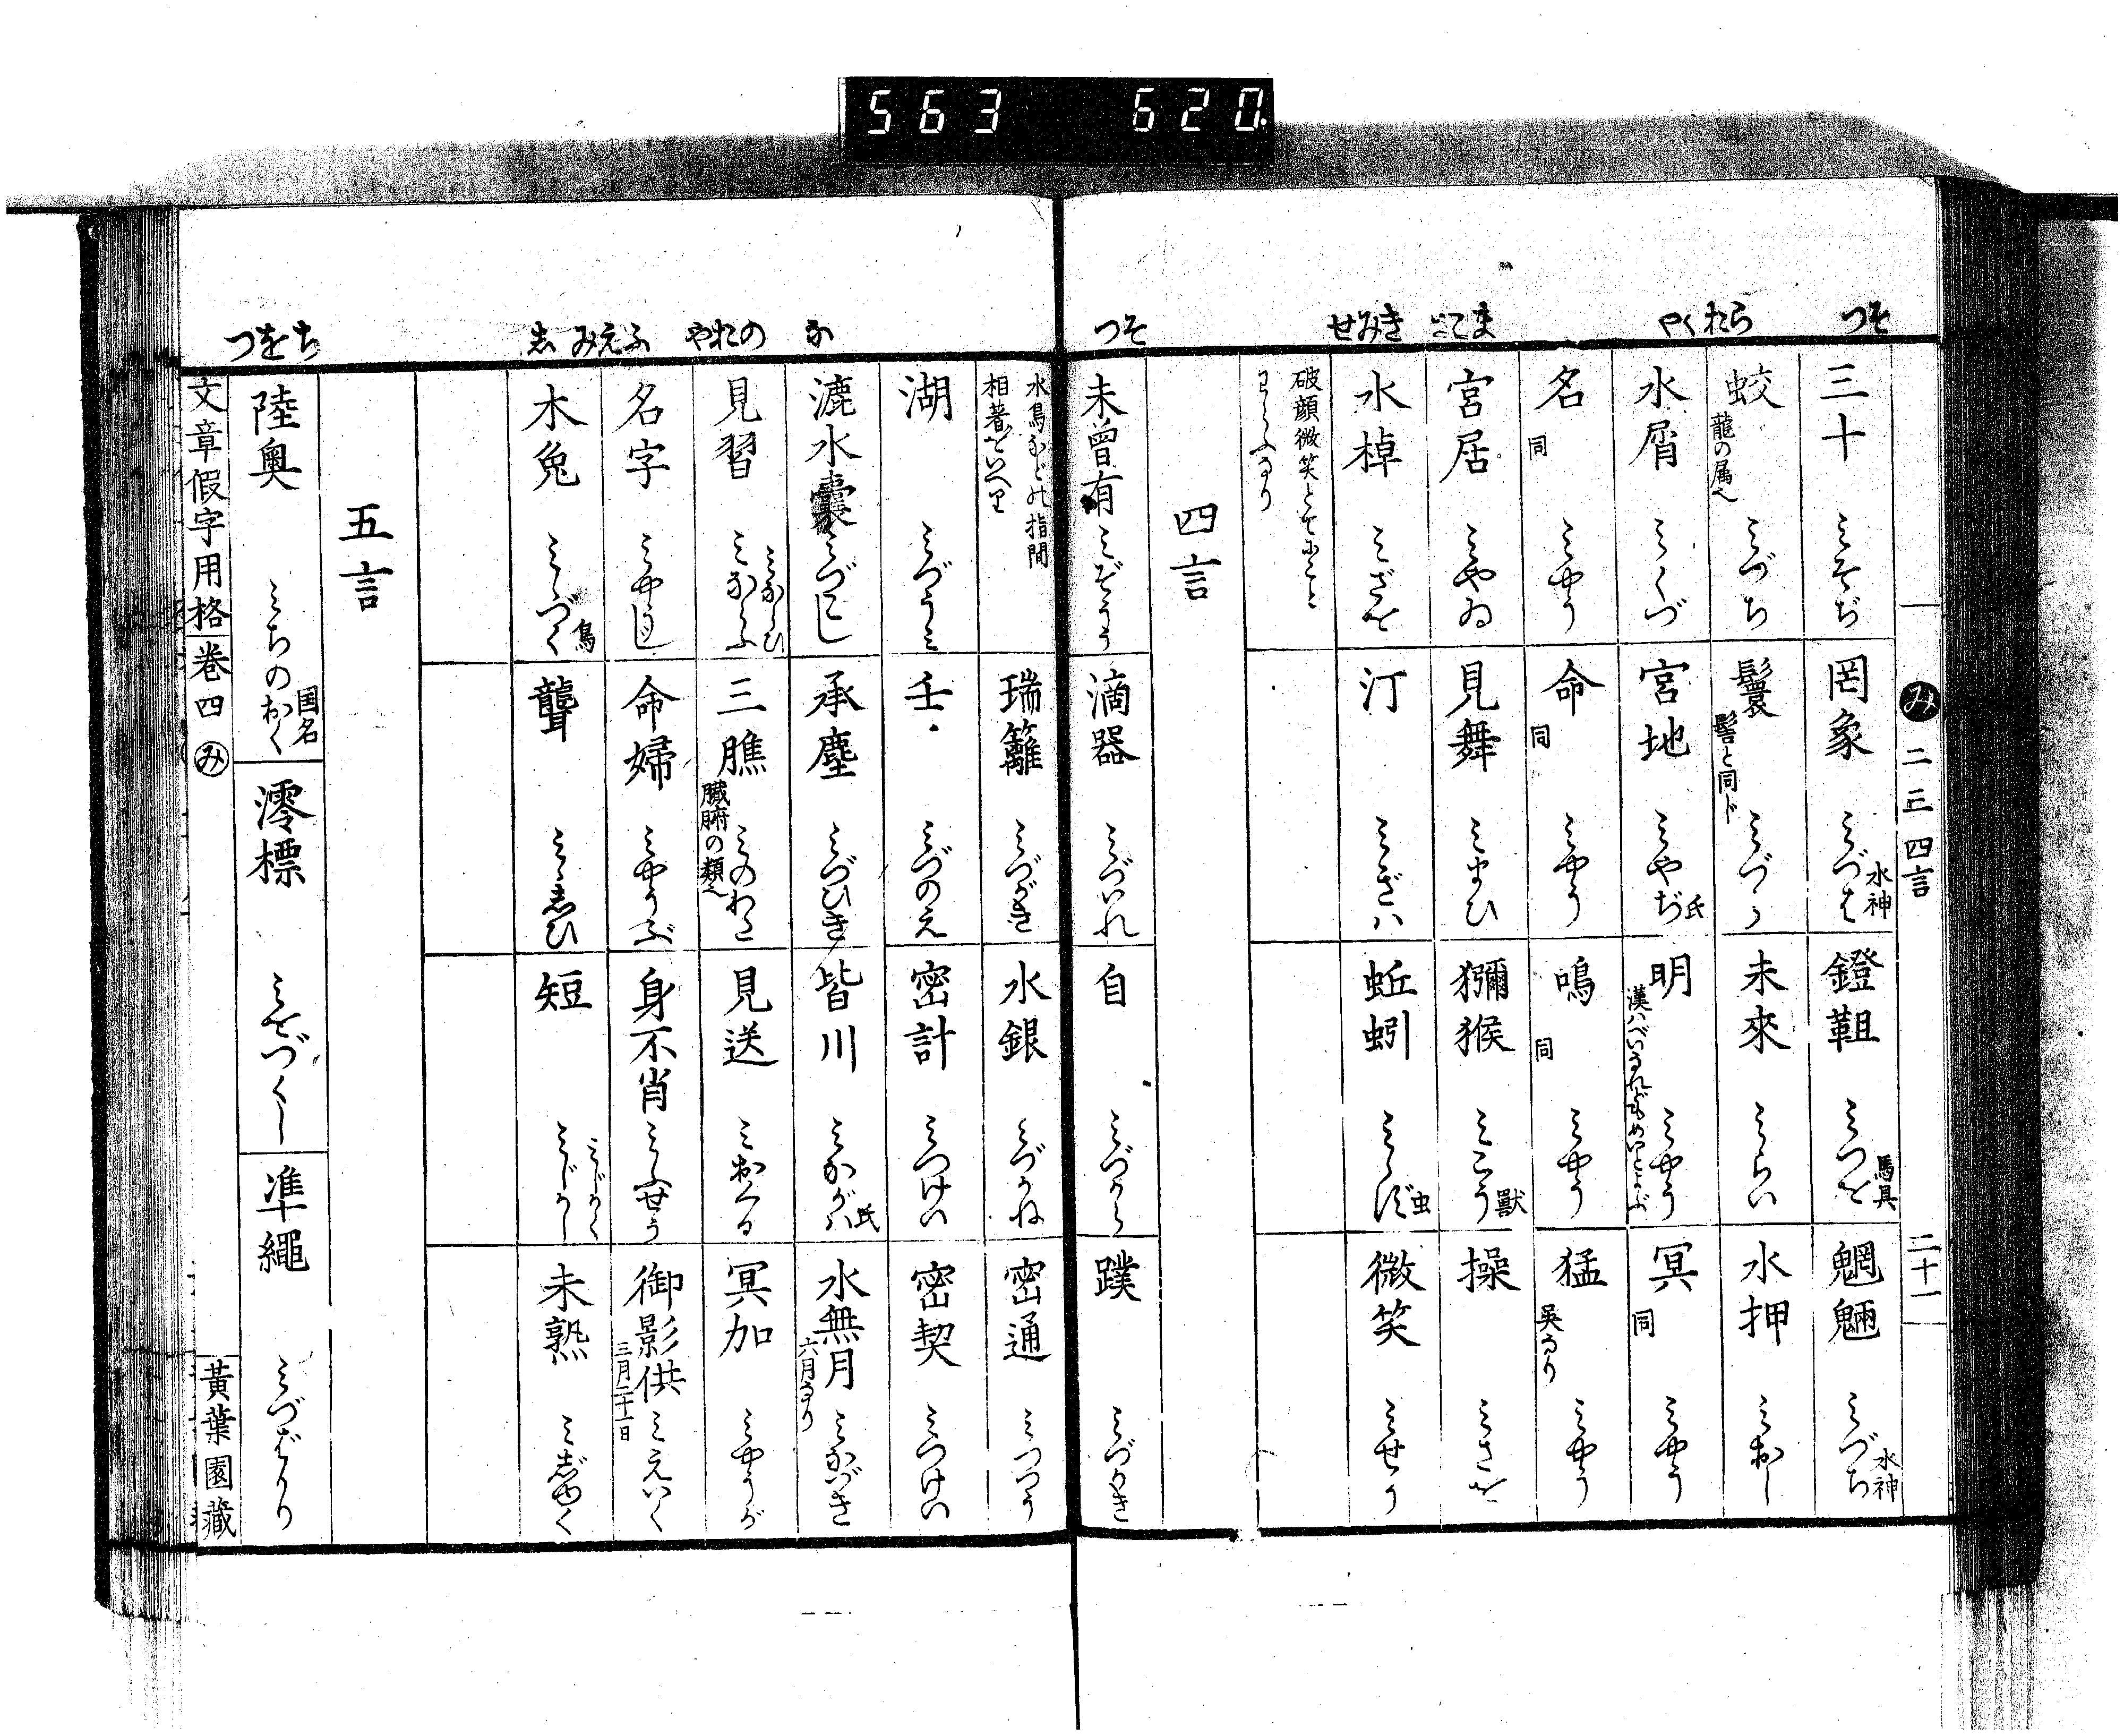 563 620
みそ 二三四言 二十一
つそ
やくれら
せみき
三十 みそぢ
罔象 みづは 水神
鐙靼 みつを 馬具
魍魎 みづち 水神
蛟 龍の属也 みづち
鬟 髻と同ド みづら
未來 みらい
水押 みおし
水屑 みくづ
宮地 みやぢ 氏
明 みやう
冥 同 みやう
名 同 みやう
命 同 みやう
鳴 同 みやう
猛 呉なり みやう
宮居 みやゐ
見舞 みまひ
獼猴 みこう 獸
操 みさを
水棹 みざを
汀 みぎハ
蚯蚓 みゝず 虫
微笑 みせう
四言
つそ
未曽有 みぞうう
滴器 みづいれ
自 みづから
蹼 みづかき
水鳥などの指間
相著をいへり
瑞籬 みづがき
水銀 みづかね
密通 みつつう
湖 みづうミ
壬 みづのえ
密計 みつけい
密契 みつけい
漉水嚢 みづこし
承塵 みづひき
皆川 みながハ 氏
水無月 六月なり みなづき
見習 みならふ みならひ
三膲 臓腑の類也 みのわた
見送 みおくる
冥加 みやうが
名字 みやうじ
命婦 みやうぶ
身不肖 みふせう
御影供 三月二十一日 みえいく
木兔 みゝづく 鳥
聾 みゝしひ
短 みじかし みじかく
未熟 みじゆく
五言
つをち
陸奥 みちのおく 国名
澪標 みをづくし
準繩 みづばかり
文章假字用格 巻四 み
黄葉園藏